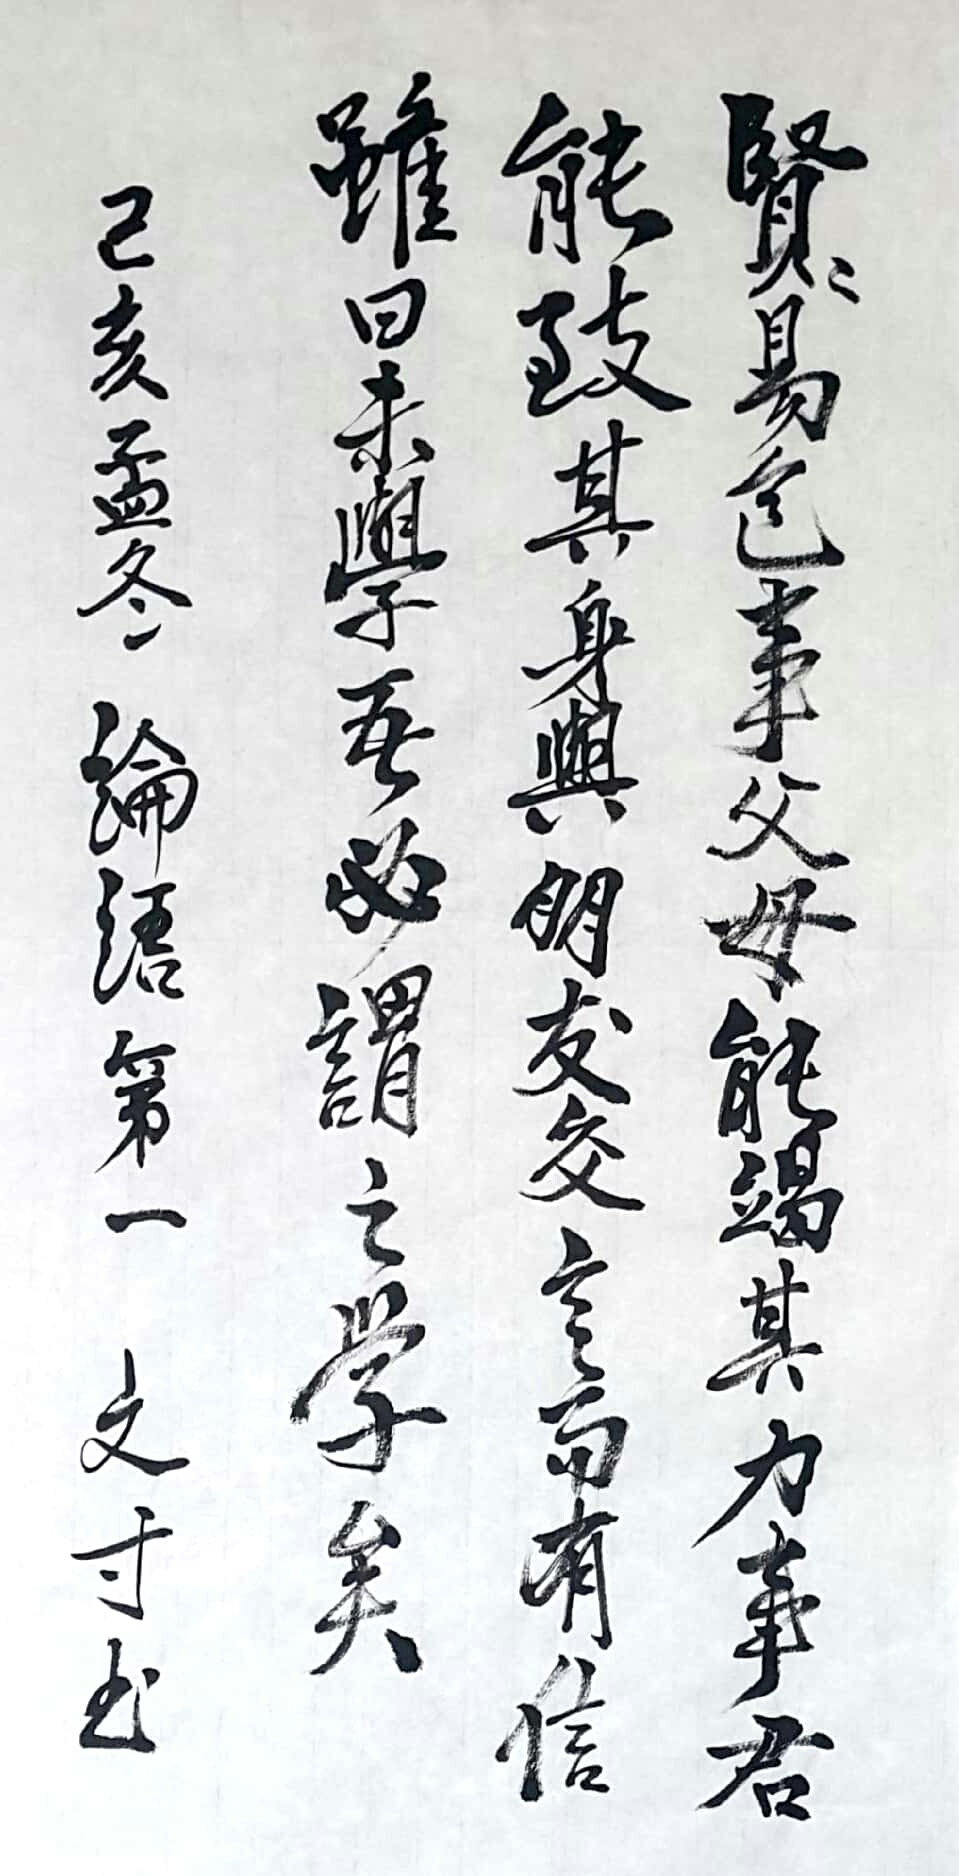 賢〻易色事父母能竭其力事君
能致其身與朋友交言而有信
雖曰未學吾必謂之学矣
己亥孟冬 論語第一 文寸书